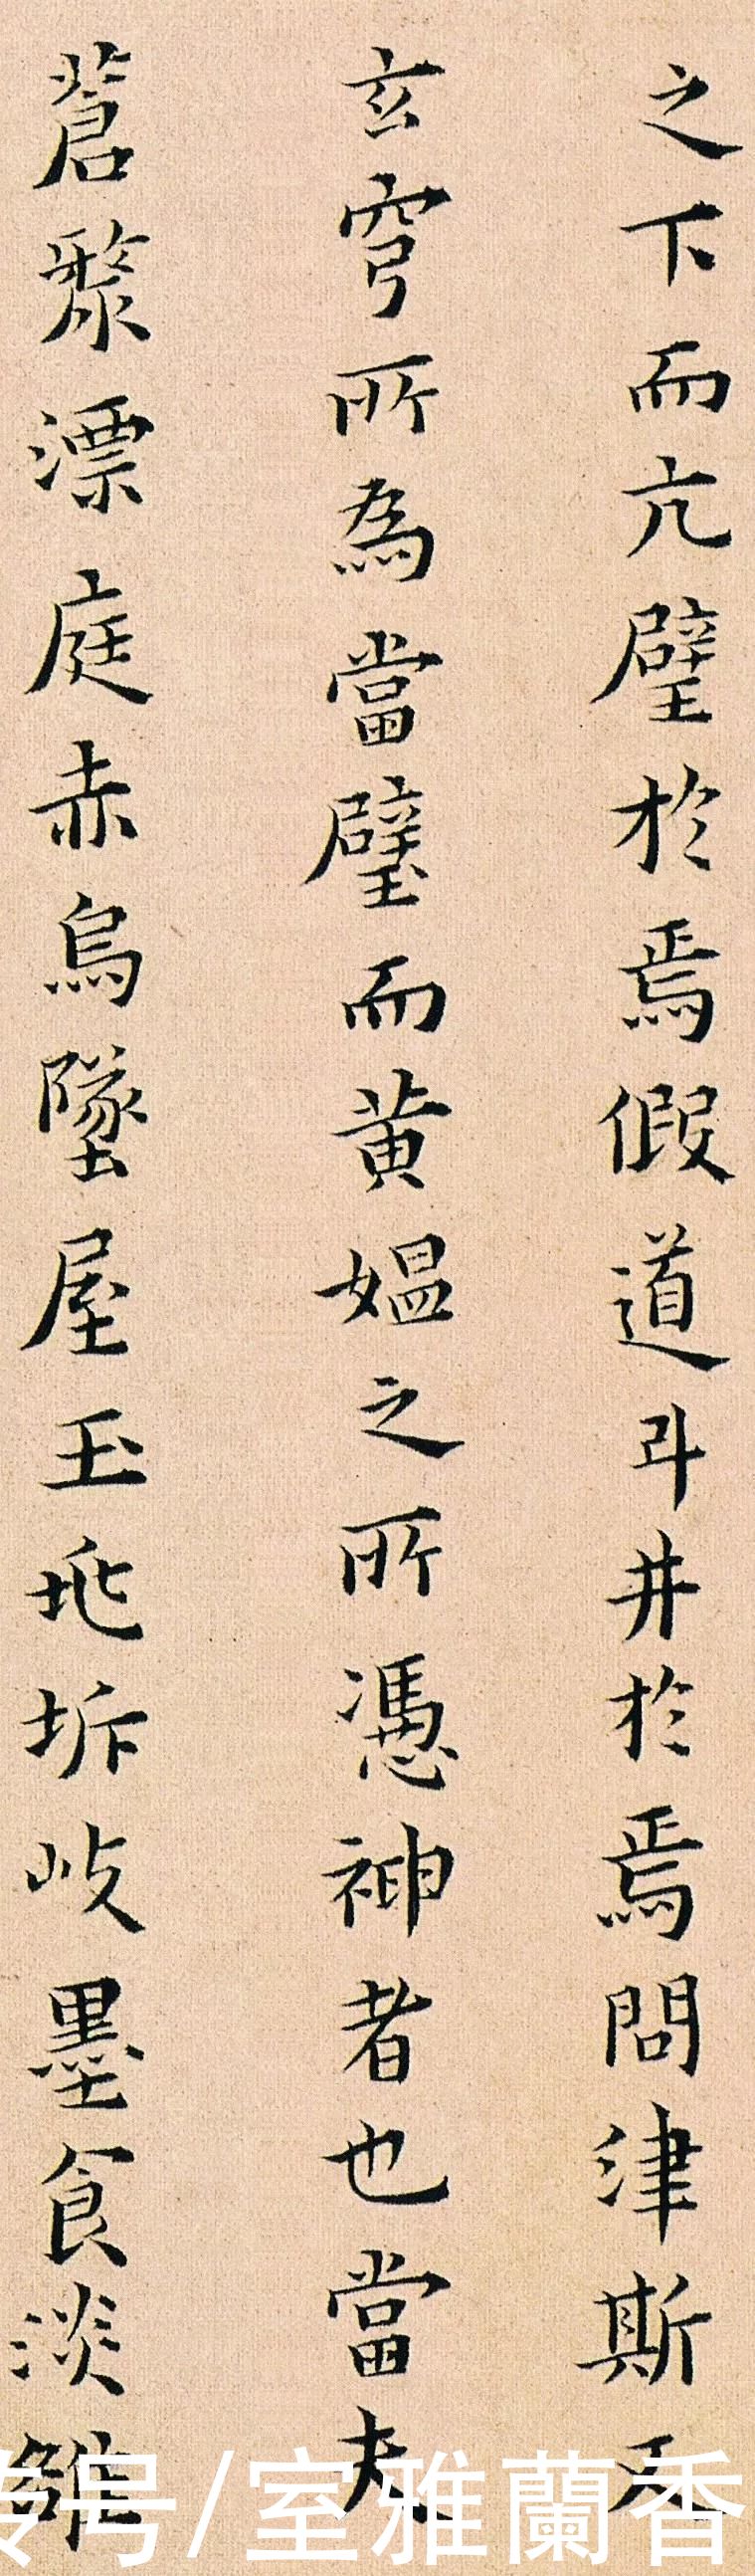 之下而亢璧於焉假道斗井於焉問津斯
玄穹所為當璧而黃媼之所憑神者也當夫
蒼漦漂庭赤烏墜屋玉垗坼岐墨食淡雒
号/室雅蘭香